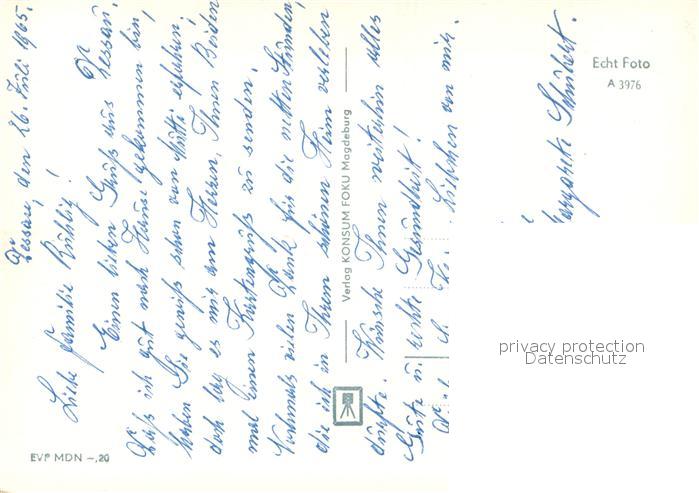 Dessau, den 26. Juli 1965.
Liebe Familie Rühlig!
Einen lieben Gruß aus Dessau.
Daß ich gut nach Hause gekommen bin,
haben Sie gewiß schon von Mutti erfahren,
doch lag es mir am Herzen, Ihnen Beiden
mal einen Kartengruß zu senden.
Nochmals vielen Dank für die netten Stunden,
die ich in Ihrem schönen Heim verleben
durfte. Wünsche Ihnen weiterhin alles
Gute u. rechte Gesundheit!
von mir.
Margarete Schubert.
Verlag KONSUM FOKU Magdeburg
EVP MDN –,20
Echt Foto
A 3976
privacy protection
Datenschutz